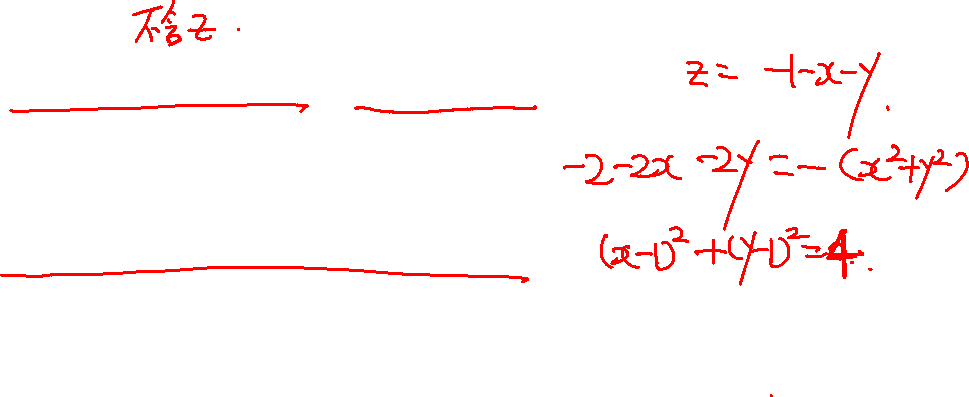 不含z.
z = -1-x-y.
-2-2x-2y=-(x²+y²)
(x-1)²+(y-1)²=4.